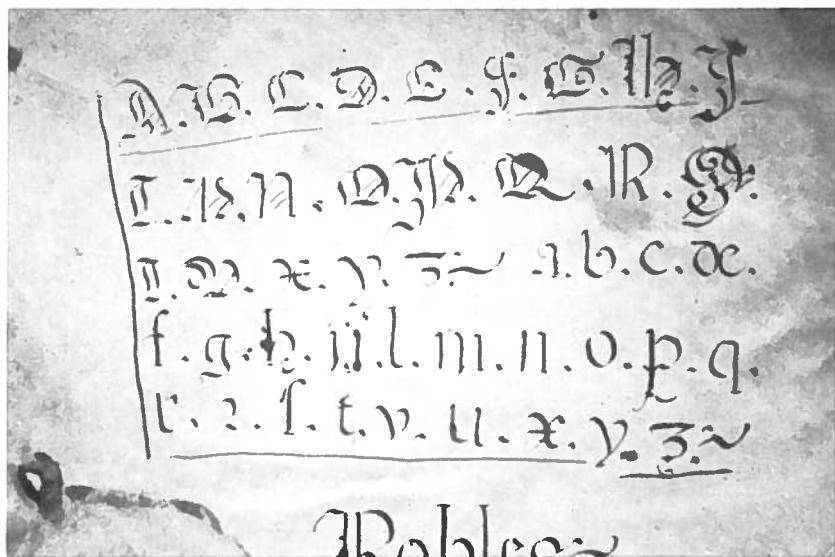 A. B. C. D. E. F. G. H. J
L. M. N. O. P. Q. R. S.
T. V. x. y. z.~ a. b. c. de.
f. g. h. ij. l. m. n. o. p. q.
r. 2. ſ. t. v. u. x. y. z.~
Robles~